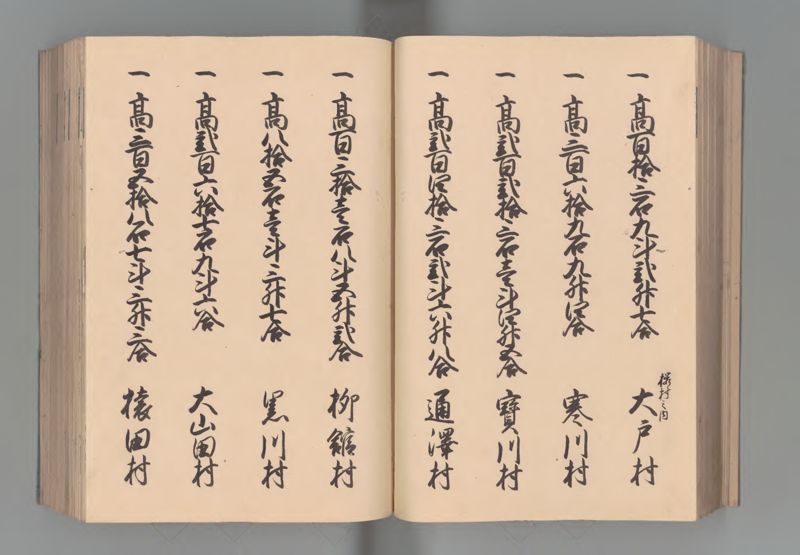 一 髙百拾三石九斗弐升七合 村之内 大戸村
一 髙三百六拾九石九升四合 寒川村
一 髙弐百弐拾三石壱斗四升五合 寶川村
一 髙弐百四拾三石弐斗六升八合 通澤村
一 髙百三拾壱石八斗五升弐合 柳舘村
一 髙八拾五石壱斗三升七合 黒川村
一 髙弐百六拾七石九斗六合 大山田村
一 髙三百五拾八石七斗三升三合 猿田村